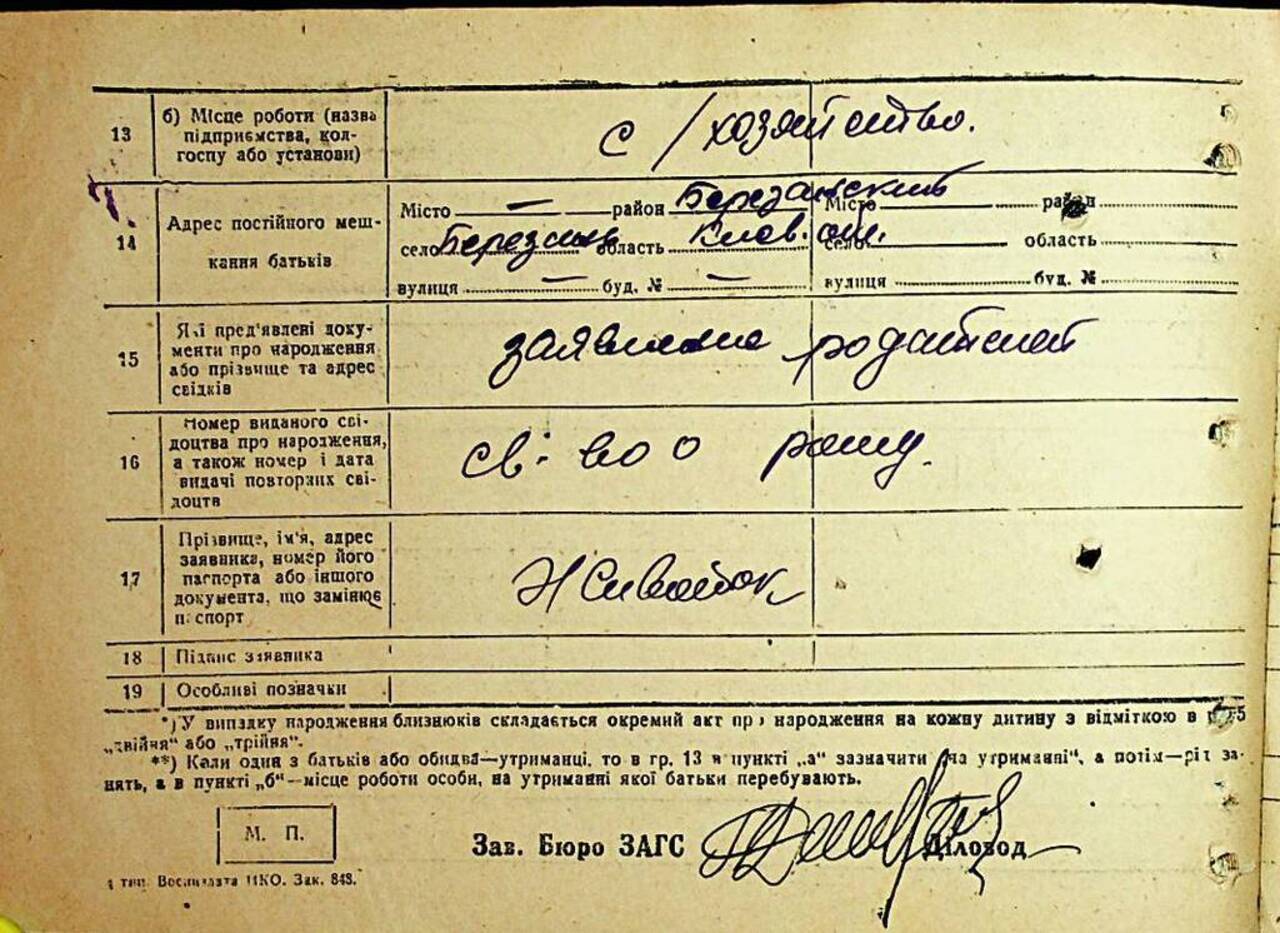 13
б) Місце роботи (назва
підприємства, кол-
госпу або установи)
с/хозяйство.
14
Адрес постійного меш-
кання батьків
Місто — район Березанский Місто район
село Березань область Киев. обл. село область
вулиця — буд. № — вулиця буд. №
15
Які пред'явлені доку-
менти про народження
або прізвище та адрес
свідків
заявление родителей
16
Номер виданого сві-
доцтва про народження,
а також номер і дата
видачі повторних сві-
доцтв
св-во о
17
Прізвище, ім'я, адрес
заявника, номер його
паспорта або іншого
документа, що замінює
паспорт
18 Підпис заявника
19 Особливі позначки
*) У випадку народження близнюків складається окремий акт про народження на кожну дитину з відміткою в
„двійня“ або „трійня“.
**) Коли один з батьків або обидва—утриманці, то в гр. 13 в пункті „а“ зазначити „на утриманні“, а потім—рід за-
нять, а в пункті „б“—місце роботи особи, на утриманні якої батьки перебувають.
М. П.
Зав. Бюро ЗАГС Діловод
тип. Воениздата НКО. Зак. 848.